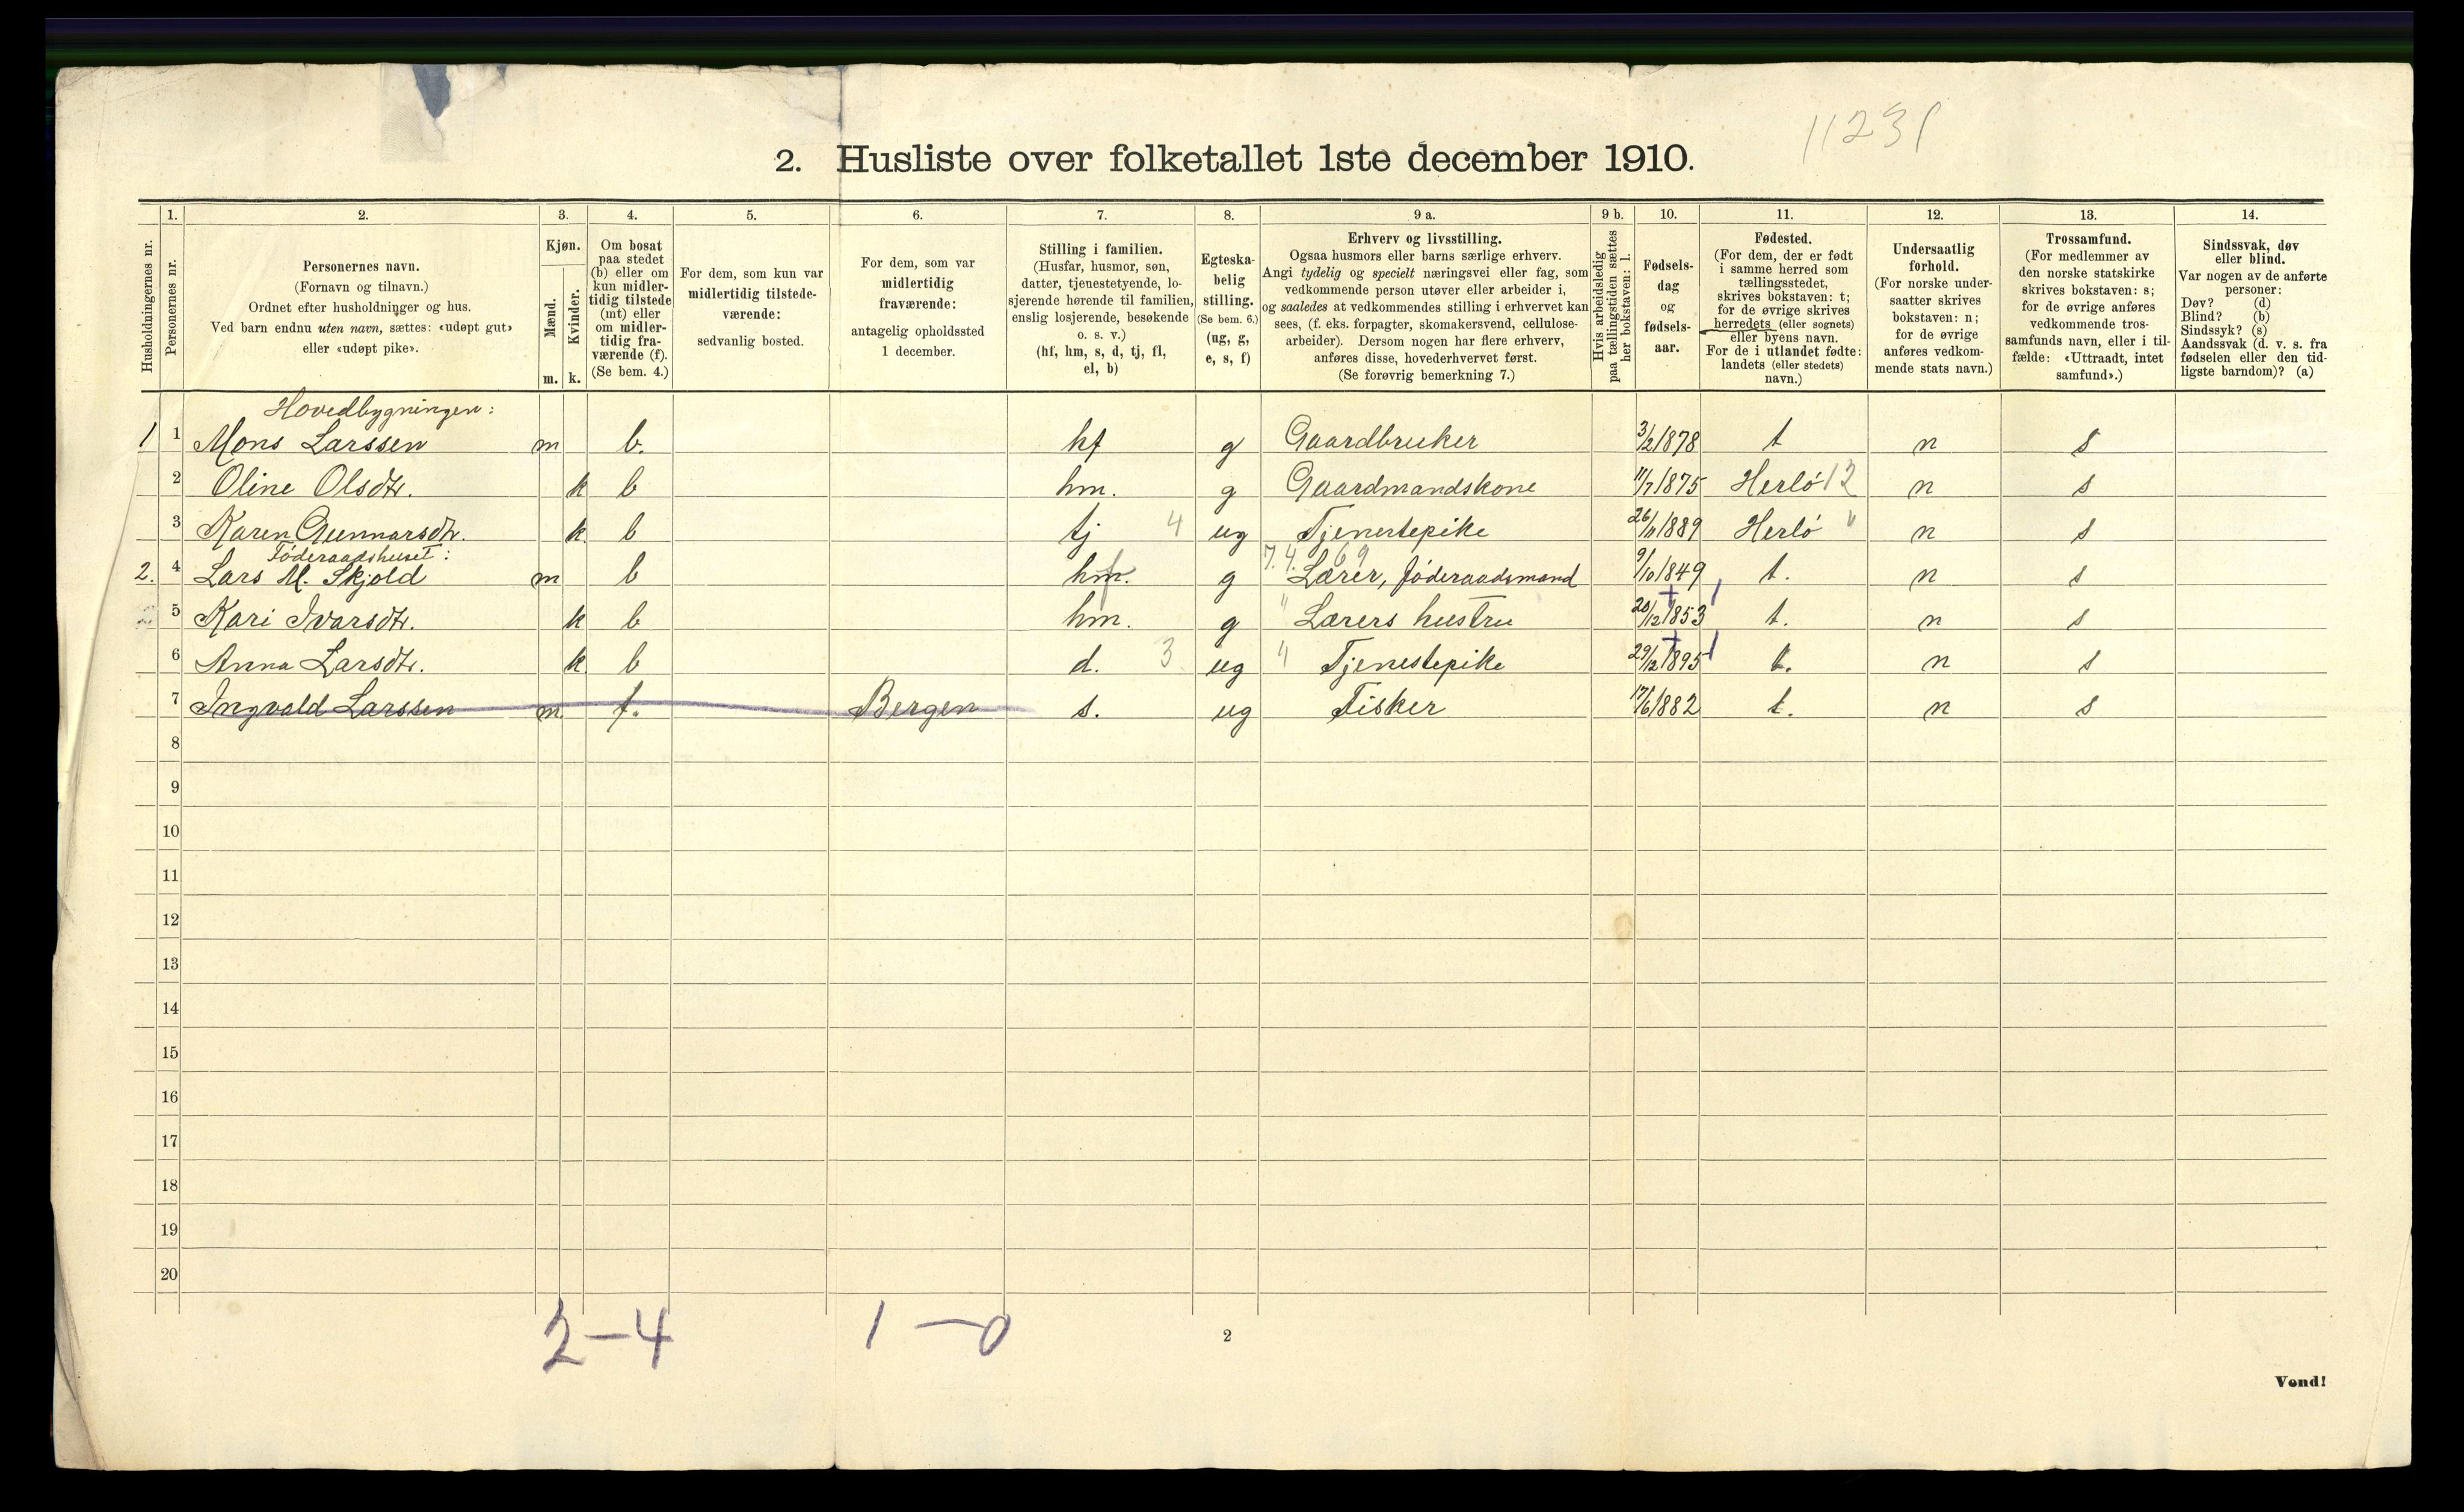 11231
2. Husliste over folketallet 1ste december 1910.
Husholdningernes nr.
1.
Personernes nr.
2.
Personernes navn.
(Fornavn og tilnavn.)
Ordnet efter husholdninger og hus.
Ved barn endnu uten navn, sættes: «udøpt gut»
eller «udøpt pike».
3.
Kjøn.
Mænd.
Kvinder.
m. k.
4.
Om bosat
paa stedet
(b) eller om
kun midler-
tidig tilstede
(mt) eller
om midler-
tidig fra-
værende (f).
(Se bem. 4.)
5.
For dem, som kun var
midlertidig tilstede-
værende:
sedvanlig bosted.
6.
For dem, som var
midlertidig
fraværende:
antagelig opholdssted
1 december.
7.
Stilling i familien.
(Husfar, husmor, søn,
datter, tjenestetyende, lo-
sjerende hørende til familien,
enslig losjerende, besøkende
o. s. v.)
(hf, hm, s, d, tj, fl,
el, b)
8.
Egteska-
belig
stilling.
(Se bem. 6.)
(ug, g,
e, s, f)
9 a.
Erhverv og livsstilling.
Ogsaa husmors eller barns særlige erhverv.
Angi tydelig og specielt næringsvei eller fag, som
vedkommende person utøver eller arbeider i,
og saaledes at vedkommendes stilling i erhvervet kan
sees, (f. eks. forpagter, skomakersvend, cellulose-
arbeider). Dersom nogen har flere erhverv,
anføres disse, hovederhvervet først.
(Se forøvrig bemerkning 7.)
9 b.
Hvis arbeidsledig
paa tællingstiden sættes
her bokstaven: l.
10.
Fødsels-
dag
og
fødsels-
aar.
11.
Fødested.
(For dem, der er født
i samme herred som
tællingsstedet,
skrives bokstaven: t;
for de øvrige skrives
herredets (eller sognets)
eller byens navn.
For de i utlandet fødte:
landets (eller stedets)
navn.)
12.
Undersaatlig
forhold.
(For norske under-
saatter skrives
bokstaven: n;
for de øvrige
anføres vedkom-
mende stats navn.)
13.
Trossamfund.
(For medlemmer av
den norske statskirke
skrives bokstaven: s;
for de øvrige anføres
vedkommende tros-
samfunds navn, eller i til-
fælde: «Uttraadt, intet
samfund».)
14.
Sindssvak, døv
eller blind.
Var nogen av de anførte
personer:
Døv? (d)
Blind? (b)
Sindssyk? (s)
Aandssvak (d. v. s. fra
fødselen eller den tid-
ligste barndom)? (a)
Hovedbygningen:
1 1 Mons Larssen m b. hf g Gaardbruker 3/2 1878 t n s
2 Oline Olsdtr. k b hm. g Gaardmandskone 11/7 1875 Herlö 12 n s
3 Karen Gunnarsdtr. k b tj 4 ug Tjenestepike 26/11 1889 Herlö " n s
Föderaadshuset:
2. 4 Lars M. Skjold m b hf. g 7.4. 69 Lærer, föderaadsmand 9/10 1849 t. n s
5 Kari Ivarsdtr. k b hm. g " Lærers hustru 20/12 1853 t. n s
6 Anna Larsdtr. k b d. 3 ug " Tjenestepike 29/12 1895 t. n s
7 Ingvald Larssen m f. Bergen s. ug Fisker 17/6 1882 t. n s
8
9
10
11
12
13
14
15
16
17
18
19
20
2-4 1-0
2
Vend!